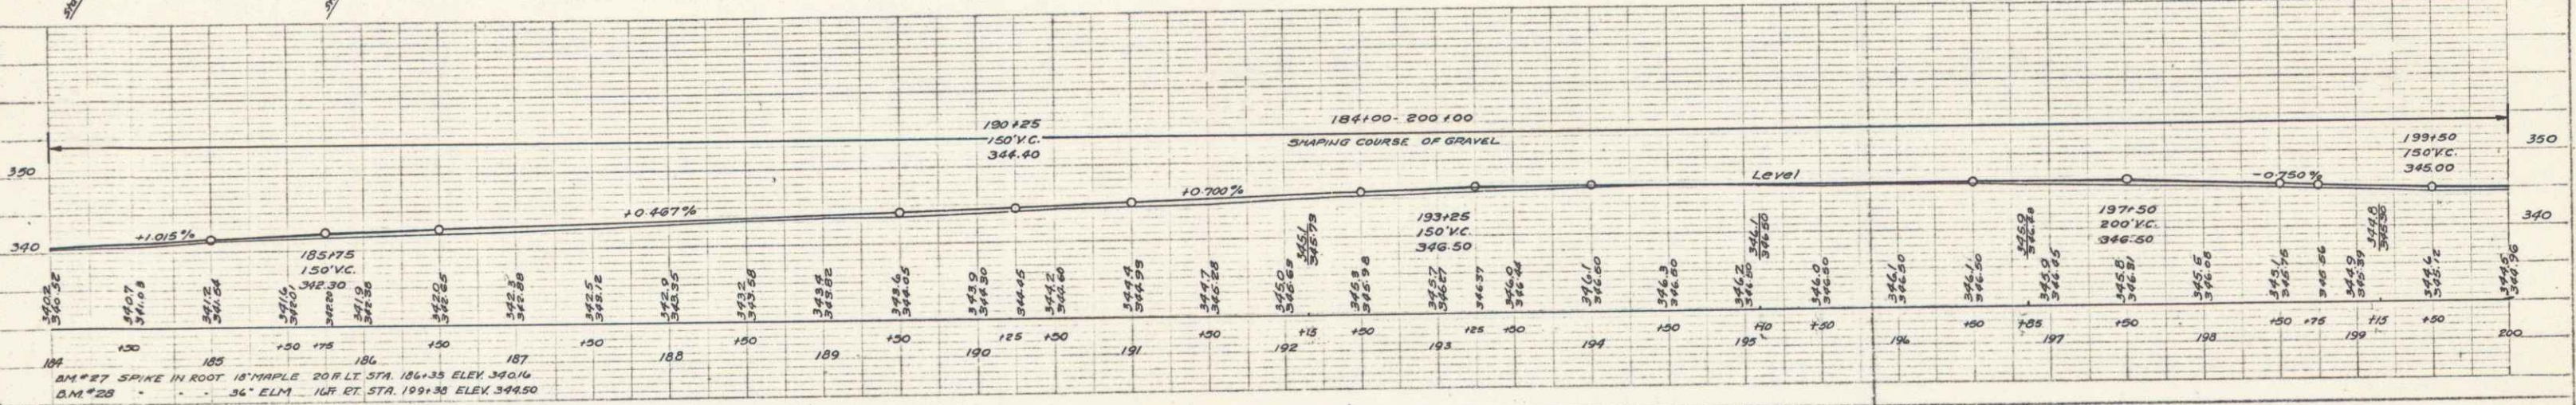 190+25
150' V.C.
344.40
184+00 - 200+00
SHAPING COURSE OF GRAVEL
199+50
150' V.C.
345.00
350
350
+1.015%
+0.467%
+0.700%
Level
-0.750%
340
340
185+75
150' V.C.
342.30
193+25
150' V.C.
346.50
197+50
200' V.C.
346.50
340.2 340.52
340.7 341.03
341.2 341.54
341.6 342.01
342.20
341.9 342.38
342.0 342.65
342.3 342.88
342.5 343.12
342.9 343.35
343.2 343.58
343.4 343.82
343.6 344.05
343.9 344.30
344.45
344.2 344.60
344.4 344.93
344.7 345.28
345.0 345.63
345.1 345.73
345.3 345.98
345.7 346.27
346.37
346.0 346.44
346.1 346.50
346.3 346.50
346.2 346.50
346.1 346.50
346.0 346.50
346.1 346.50
346.1 346.50
345.9 346.45
345.8 346.31
345.5 346.08
345.1 345.75
345.56
344.9 345.39
344.8 345.30
344.6 345.12
344.5 344.96
184 +50 185 +50 +75 186 +50 187 +50 188 +50 189 +50 190 +25 +50 191 +50 192 +15 +50 193 +25 +50 194 +50 195 +10 +50 196 +50 +85 197 +50 198 +50 +75 199 +15 +50 200
B.M. #27 SPIKE IN ROOT 18" MAPLE 20 Ft. LT. STA. 186+35 ELEV. 340.16
B.M. #28 " " " 36" ELM 16 Ft RT. STA. 199+38 ELEV. 344.50